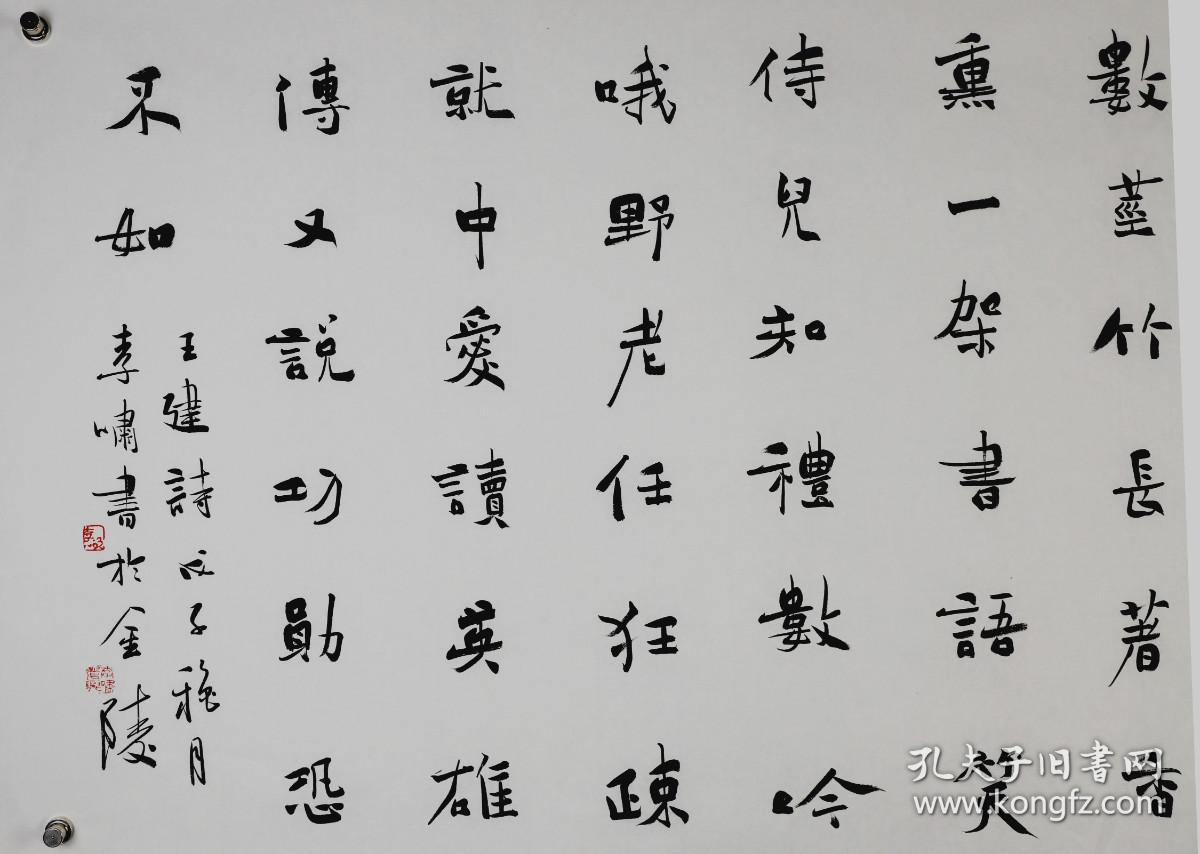 數莖竹長著香
熏一架書語笑
侍兒知禮數吟
哦野老任狂疎
就中愛讀英雄
傳又說功勛恐
不如
王建詩戊子穐月
李嘯書於金陵
孔夫子旧书网
www.kongfz.com